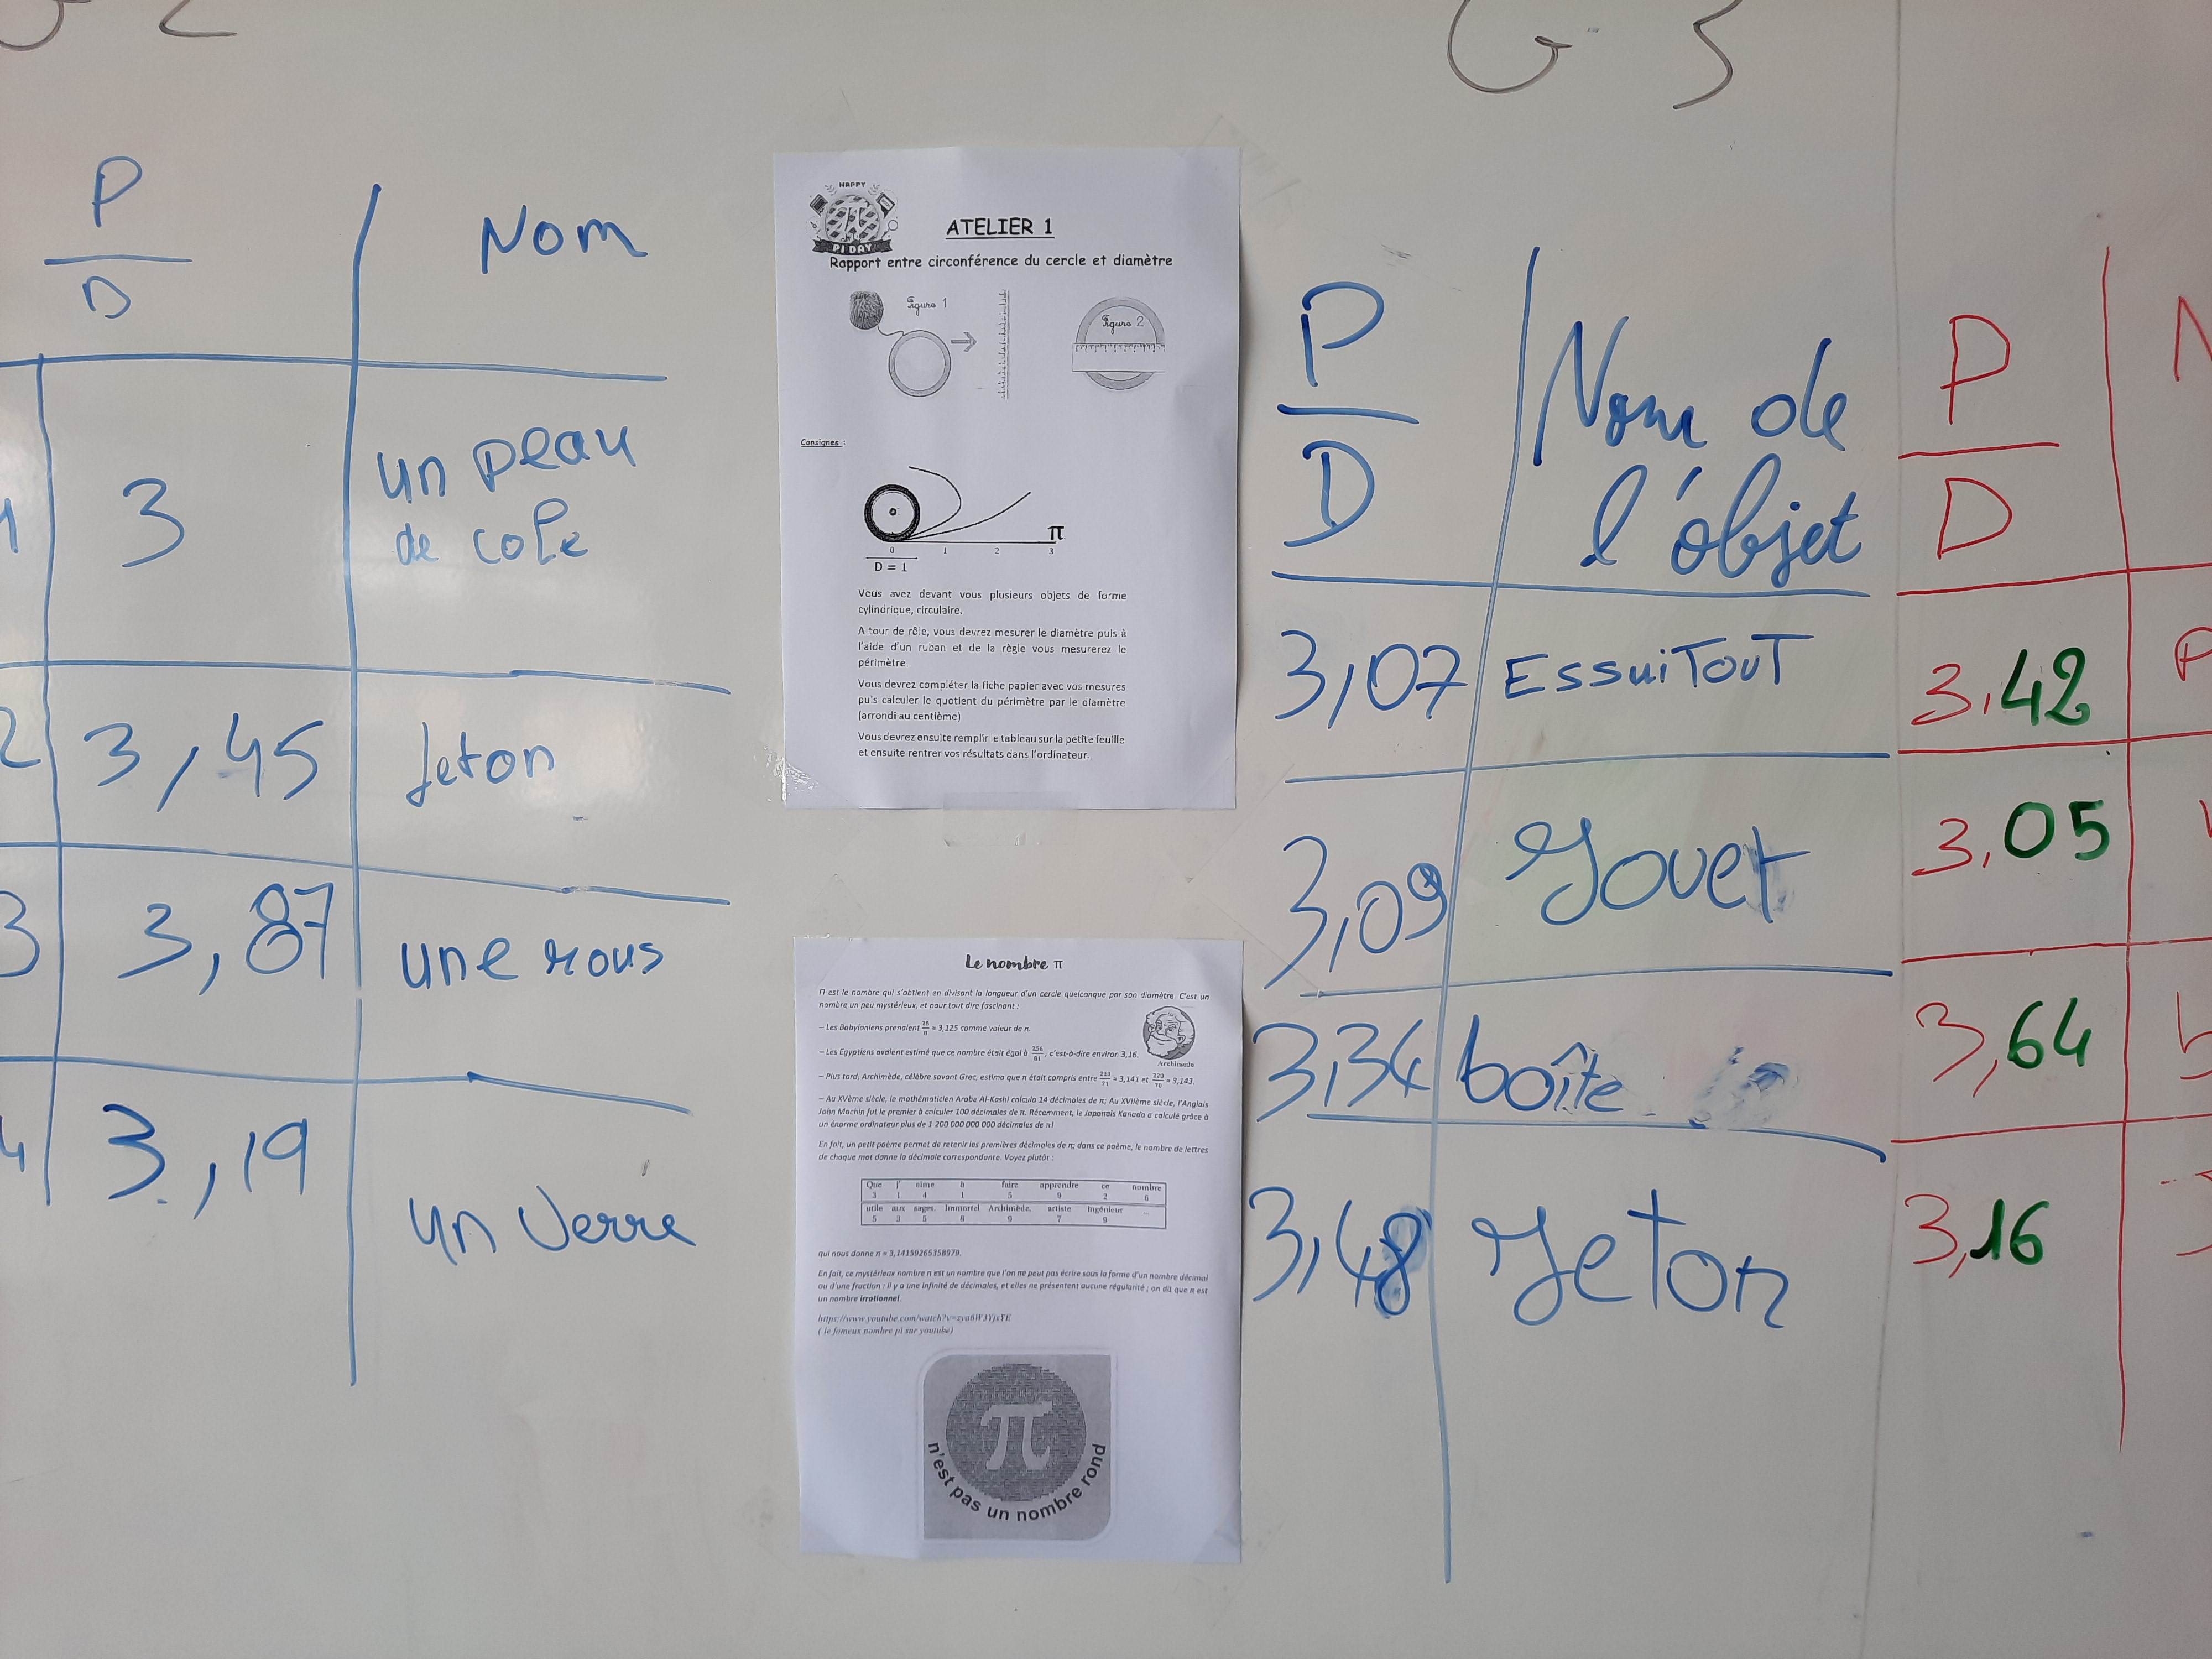 G 2
P
D
Nom
1
3
un peau
de cole
2
3,45
Jeton
3
3,87
une rous
4
3,19
un verre
HAPPY
PI DAY
ATELIER 1
Rapport entre circonférence du cercle et diamètre
Figure 1
Figure 2
Consignes :
π
0 1 2 3
D = 1
Vous avez devant vous plusieurs objets de forme
cylindrique, circulaire.
A tour de rôle, vous devrez mesurer le diamètre puis à
l'aide d'un ruban et de la règle vous mesurerez le
périmètre.
Vous devrez compléter la fiche papier avec vos mesures
puis calculer le quotient du périmètre par le diamètre
(arrondi au centième)
Vous devrez ensuite remplir le tableau sur la petite feuille
et ensuite rentrer vos résultats dans l'ordinateur.
Le nombre π
Π est le nombre qui s'obtient en divisant la longueur d'un cercle quelconque par son diamètre. C'est un
nombre un peu mystérieux, et pour tout dire fascinant :
– Les Babyloniens prenaient 25/8 = 3,125 comme valeur de π.
– Les Egyptiens avaient estimé que ce nombre était égal à 256/81, c'est-à-dire environ 3,16.
Archimède
– Plus tard, Archimède, célèbre savant Grec, estima que π était compris entre 223/71 = 3,141 et 220/70 = 3,143.
– Au XVème siècle, le mathématicien Arabe Al-Kashi calcula 14 décimales de π; Au XVIIème siècle, l'Anglais
John Machin fut le premier à calculer 100 décimales de π. Récemment, le Japonais Kanada a calculé grâce à
un énorme ordinateur plus de 1 200 000 000 000 décimales de π!
En fait, un petit poème permet de retenir les premières décimales de π; dans ce poème, le nombre de lettres
de chaque mot donne la décimale correspondante. Voyez plutôt :
Que j' aime à faire apprendre ce nombre
3 1 4 1 5 9 2 6
utile aux sages. Immortel Archimède, artiste ingénieur ...
5 3 5 8 9 7 9
qui nous donne π = 3,14159265358979.
En fait, ce mystérieux nombre π est un nombre que l'on ne peut pas écrire sous la forme d'un nombre décimal
ou d'une fraction : il y a une infinité de décimales, et elles ne présentent aucune régularité ; on dit que π est
un nombre irrationnel.
( le fameux nombre pi sur youtube)
π
n'est pas un nombre rond
G 3
P
D
Nom de
l'objet
3,07
EssuiTouT
3,09
Jouet
3,34
boîte
3,48
Jeton
P
D
N
3,42
P
3,05
3,64
3,16